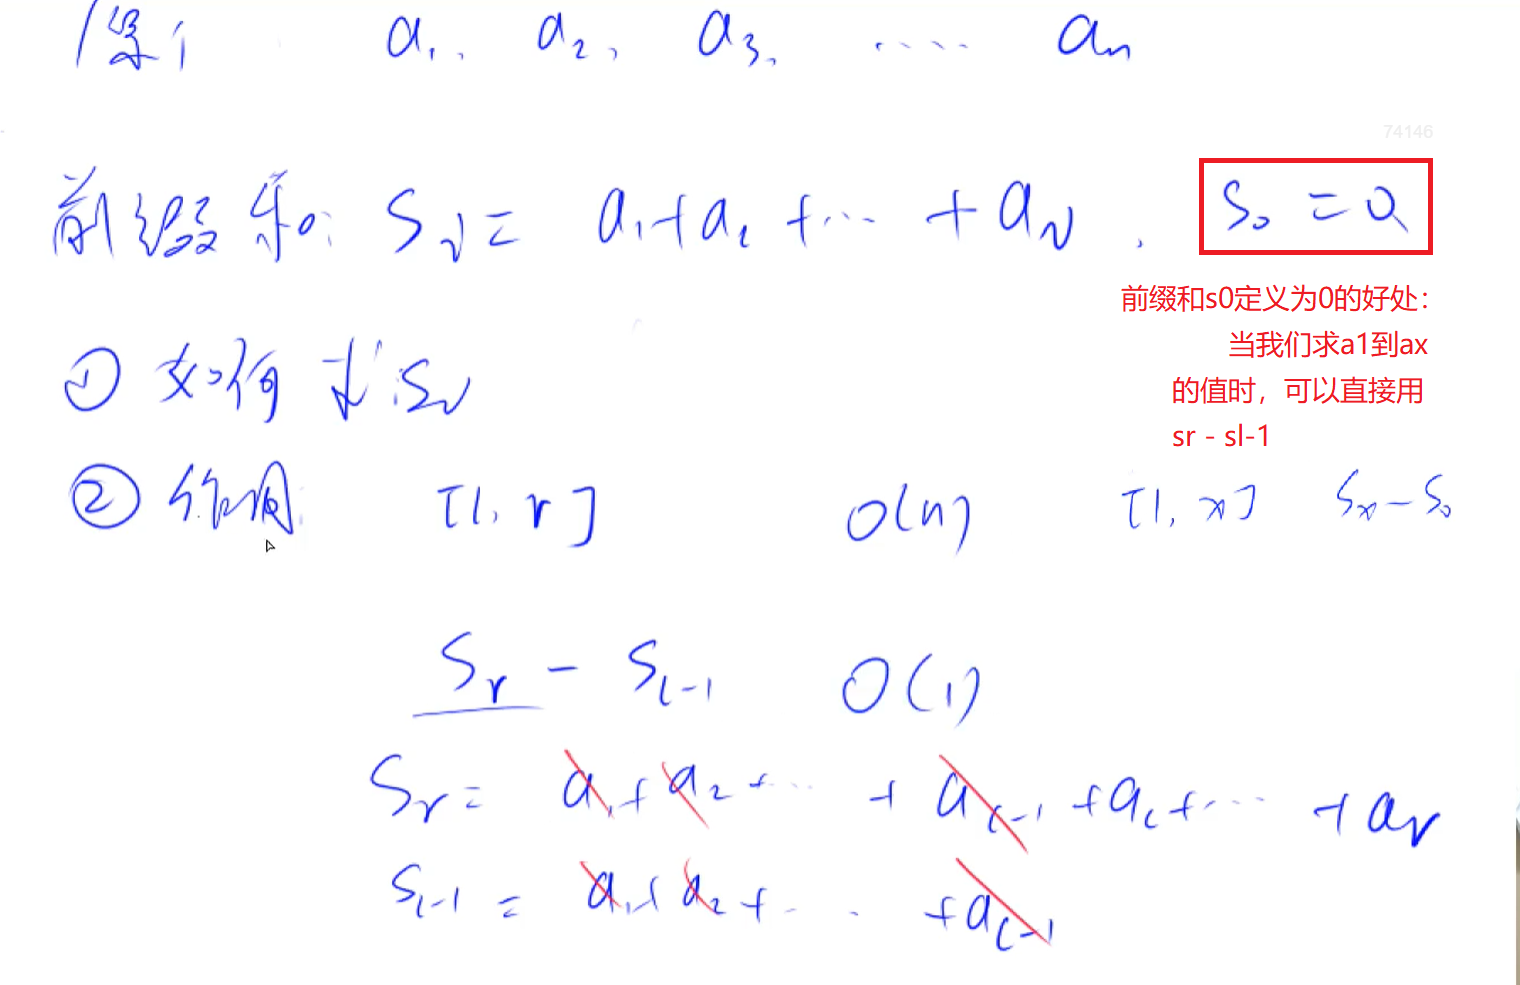 a₁, a₂, a₃, ..... aₙ
74146
前缀和: Sᵢ = a₁+a₂ +... + aᵢ. S₀ = 0
前缀和s0定义为0的好处：
当我们求a1到ax
的值时，可以直接用
sr - sl-1
① 如何求 Sᵢ
② 作用 [l, r] O(n) [1, x] Sₓ - S₀
Sᵣ - Sₗ₋₁ O(1)
Sᵣ = a₁+a₂+... + aₗ₋₁ +aₗ+... + aᵣ
Sₗ₋₁ = a₁+a₂+... +aₗ₋₁